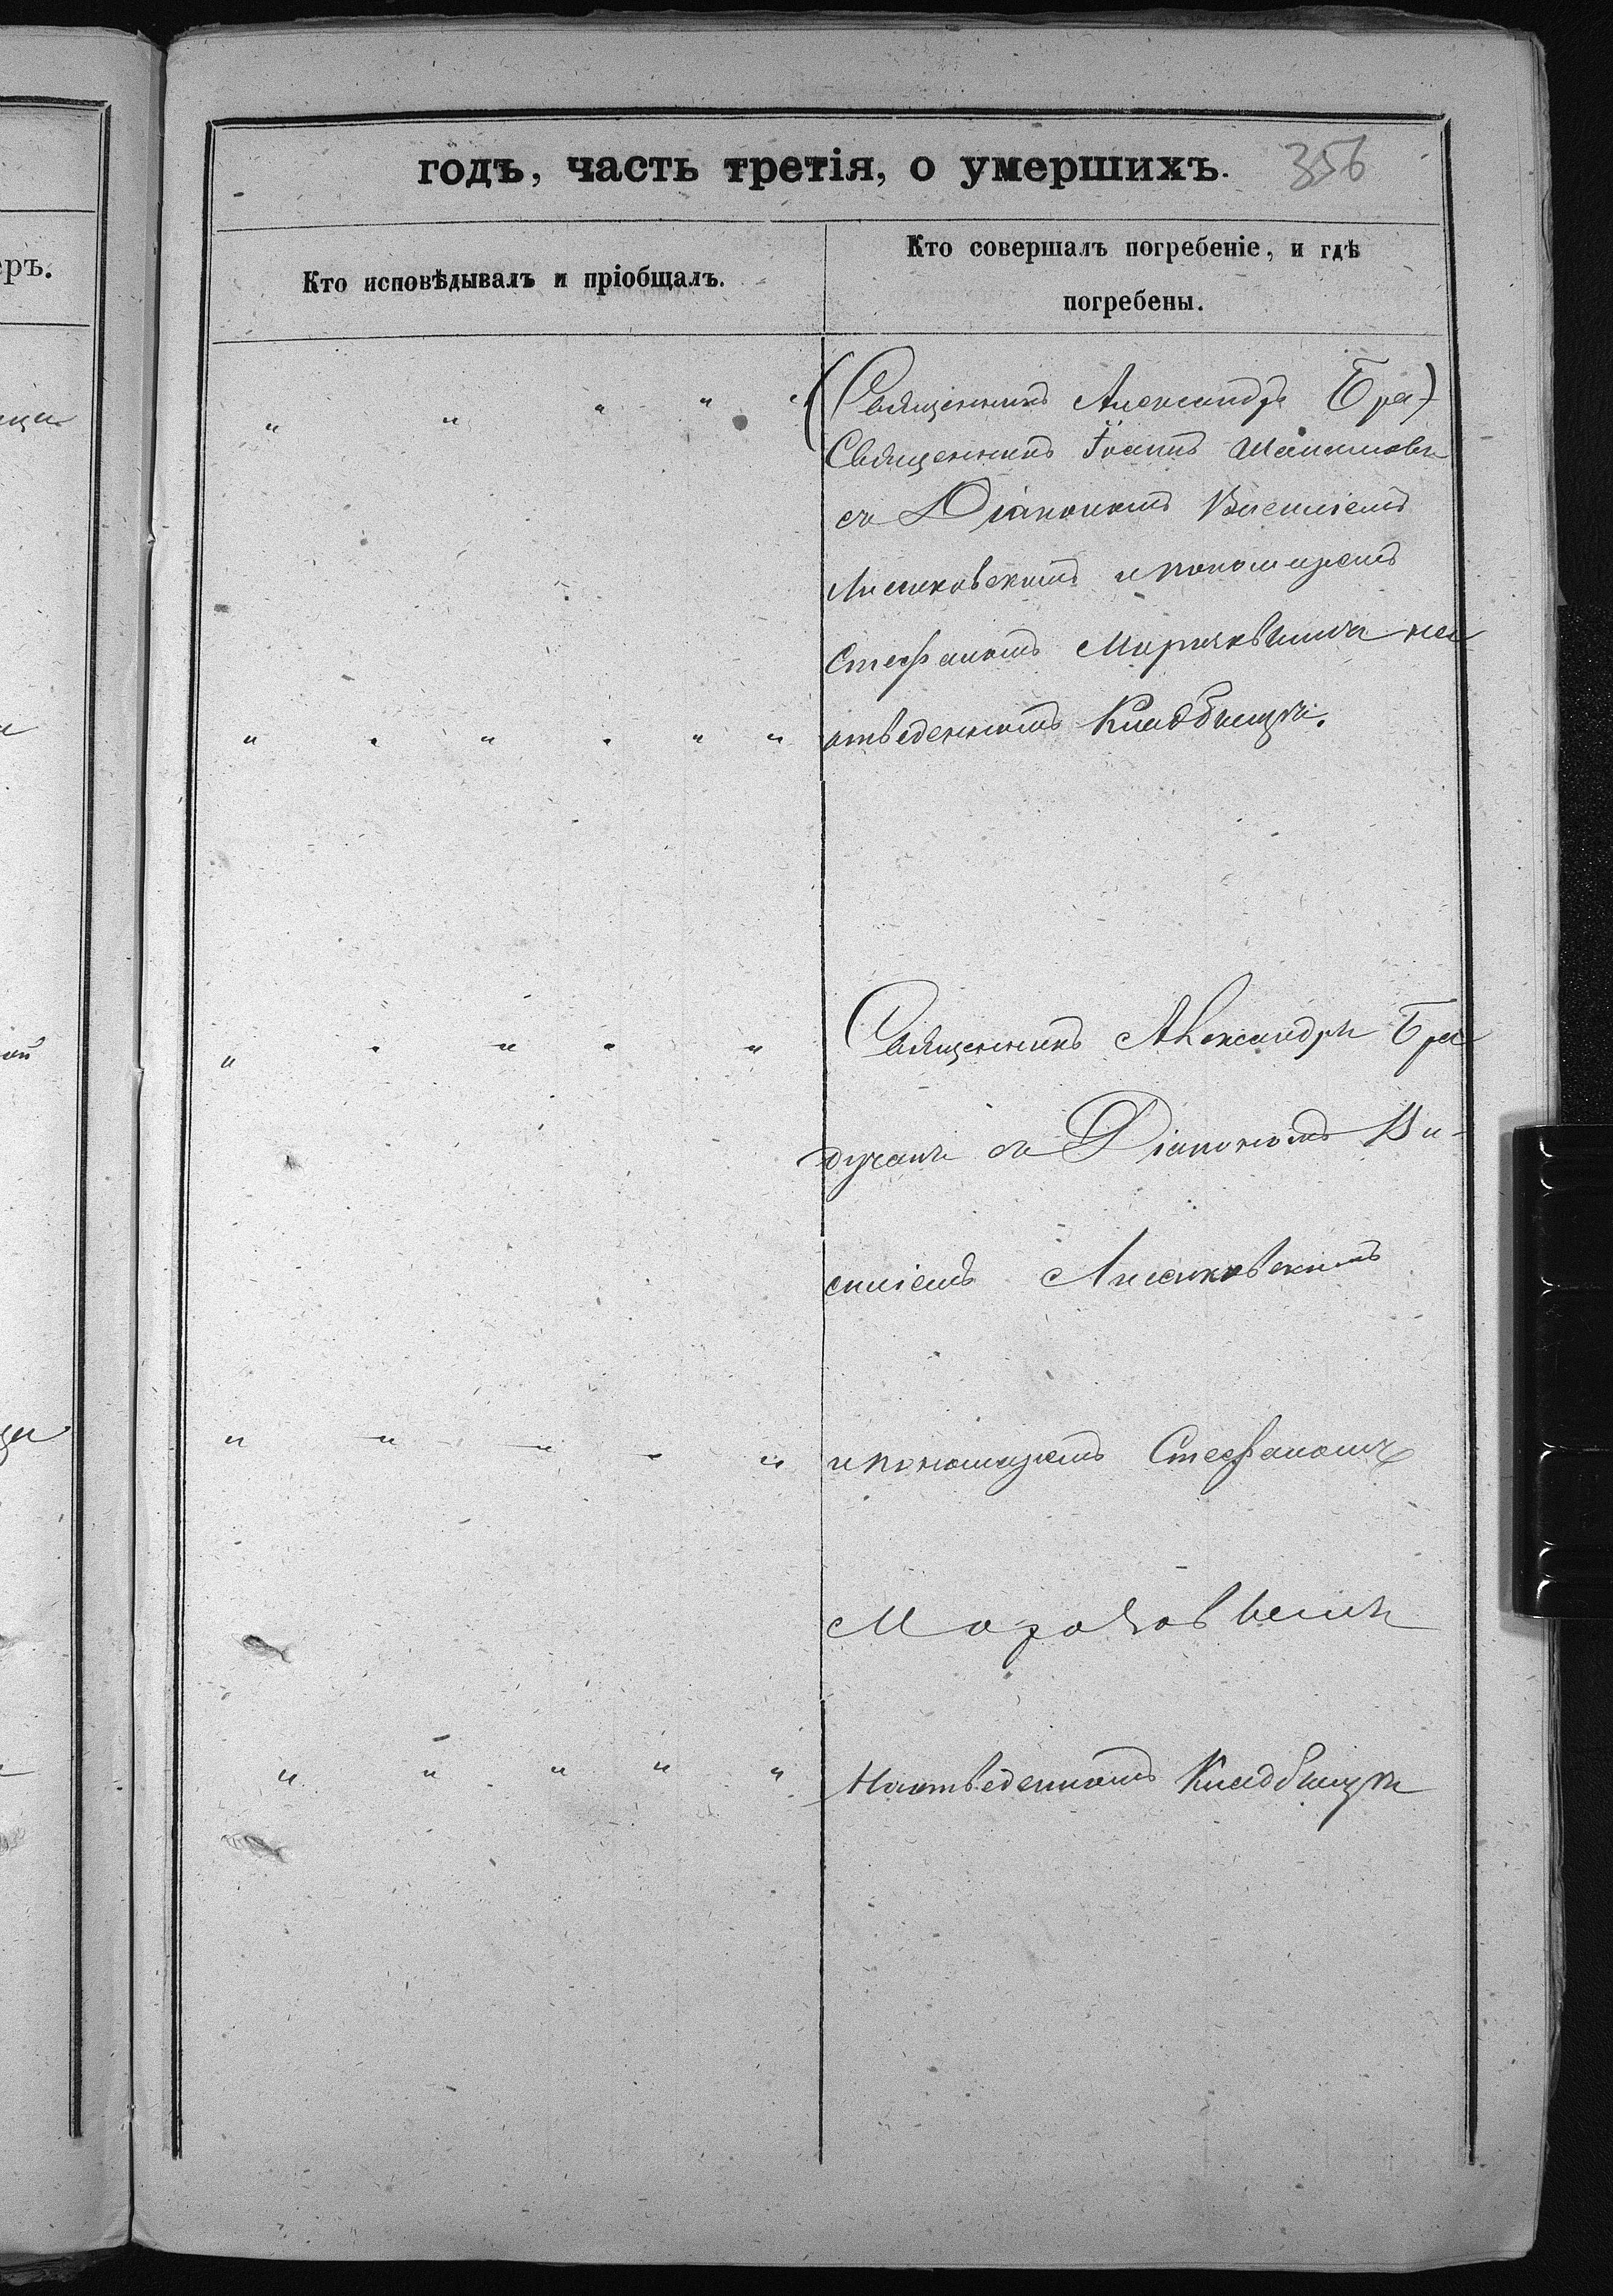 годъ, часть третія, о умершихъ. 356
Кто исповѣдывалъ и пріобщалъ.
Кто совершалъ погребеніе, и гдѣ
погребены.
еръ.
(Священникъ Александръ Бра)
Священникъ Іоаннъ
съ Діакономъ Василіемъ
Лисиковскимъ и пономаремъ
Стефаномъ на
отведенномъ Кладбищѣ.
Священникъ Александръ Бра
дучанъ съ Діакономъ Ва-
силіемъ Лисиковскимъ
и пономаремъ Стефаномъ
На отведенномъ Кладбищѣ